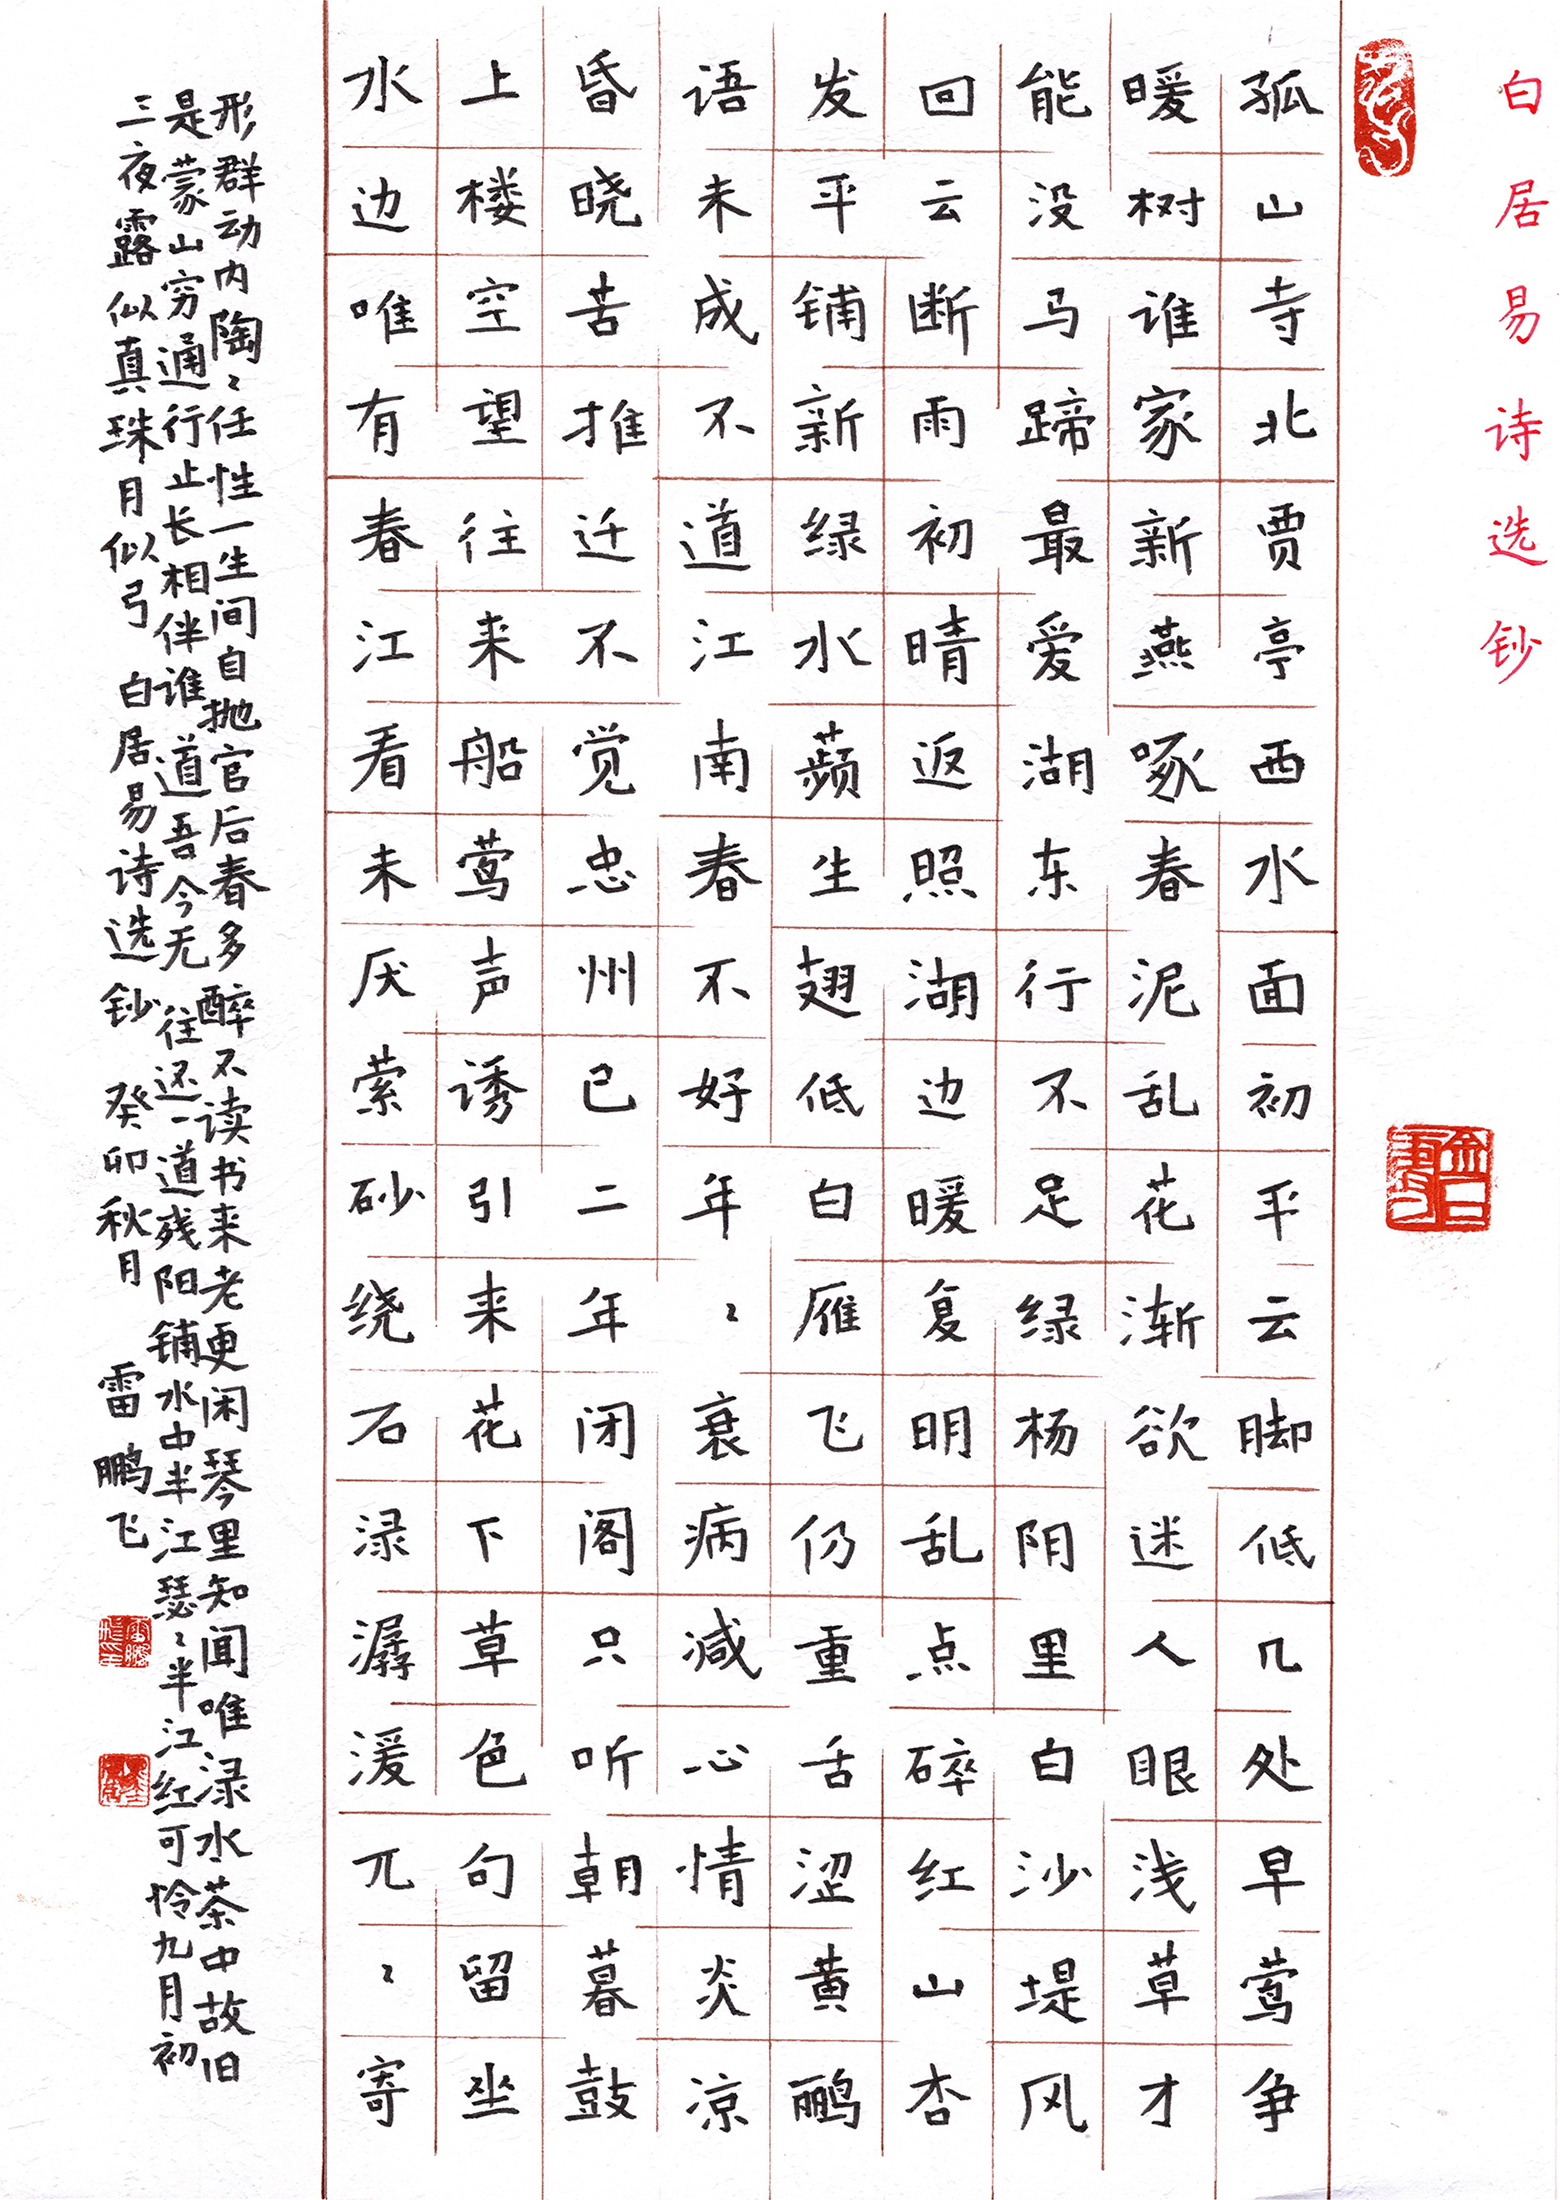 白居易诗选钞
孤山寺北贾亭西水面初平云脚低几处早莺争
暖树谁家新燕啄春泥乱花渐欲迷人眼浅草才
能没马蹄最爱湖东行不足绿杨阴里白沙堤风
回云断雨初晴返照湖边暖复明乱点碎红山杏
发平铺新绿水蘋生翅低白雁飞仍重舌涩黄鹂
语未成不道江南春不好年〻衰病减心情炎凉
昏晓苦推迁不觉忠州已二年闭阁只听朝暮鼓
上楼空望往来船莺声诱引来花下草色句留坐
水边唯有春江看未厌萦砂绕石渌潺湲兀〻寄
形群动内陶〻任性一生间自抛官后春多醉不读书来老更闲琴里知闻唯渌水茶中故旧
是蒙山穷通行止长相伴谁道吾今无往还一道残阳铺水中半江瑟〻半江红可怜九月初
三夜露似真珠月似弓 白居易诗选钞 癸卯秋月 雷鹏飞